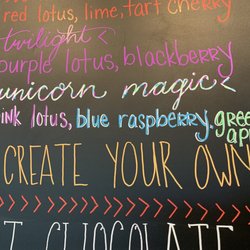 red lotus, lime, tart cherry
twilight <
purple lotus, blackberry
unicorn magic <
pink lotus, blue raspberry, green
app
CREATE YOUR OWN
>>>>>>>>>>>>>
T CHOCOLATE